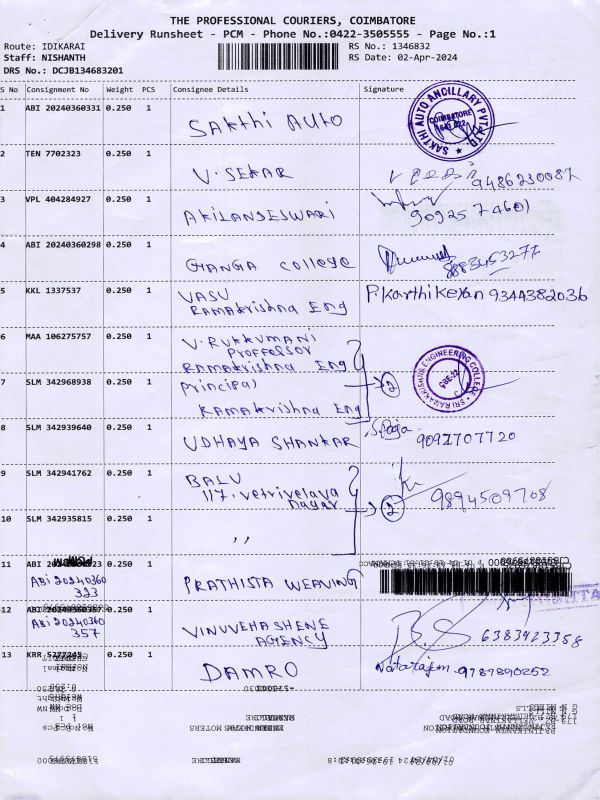 THE PROFESSIONAL COURIERS, COIMBATORE
Delivery Runsheet - PCM - Phone No.:0422-3505555 - Page No.:1
Route: IDIKARAI
RS No.: 1346832
Staff: NISHANTH
RS Date: 02-Apr-2024
DRS No.: DCJB134683201
S No Consignment No Weight PCS Consignee Details Signature
1 ABI 20240360331 0.250 1 SAKthi AUTO
SAKTHI AUTO ANCILLARY PVT LTD
COIMBATORE
2 TEN 7702323 0.250 1 V. SEKAR 9486230087
3 VPL 404284927 0.250 1 AKILANDESWARI 9092574601
4 ABI 20240360298 0.250 1 GANGA College 8883453277
5 KKL 1337537 0.250 1 VASU
Ramakrishna Eng
P. Karthikeyan 9344382036
6 MAA 106275757 0.250 1 V. RUKKUMANI
Proffessor
Ramakrishna Eng
7 SLM 342968938 0.250 1 Principal
Ramakrishna Eng
2
8 SLM 342939640 0.250 1 UDHAYA SHANKAR 9092707720
9 SLM 342941762 0.250 1 BALU
117, vetrivelava
nagar
2
9894509708
10 SLM 342935815 0.250 1 ,,
11 0.250 1 PRATHISTA WEAVING
ABi 20240360
323
12 0.250 1 VINUVEHASHENE
AGENCY
ABi 20240360
357
B.S 6383423358
13 KRR 5277245 0.250 1 DAMRO
Natarajm 9787890252